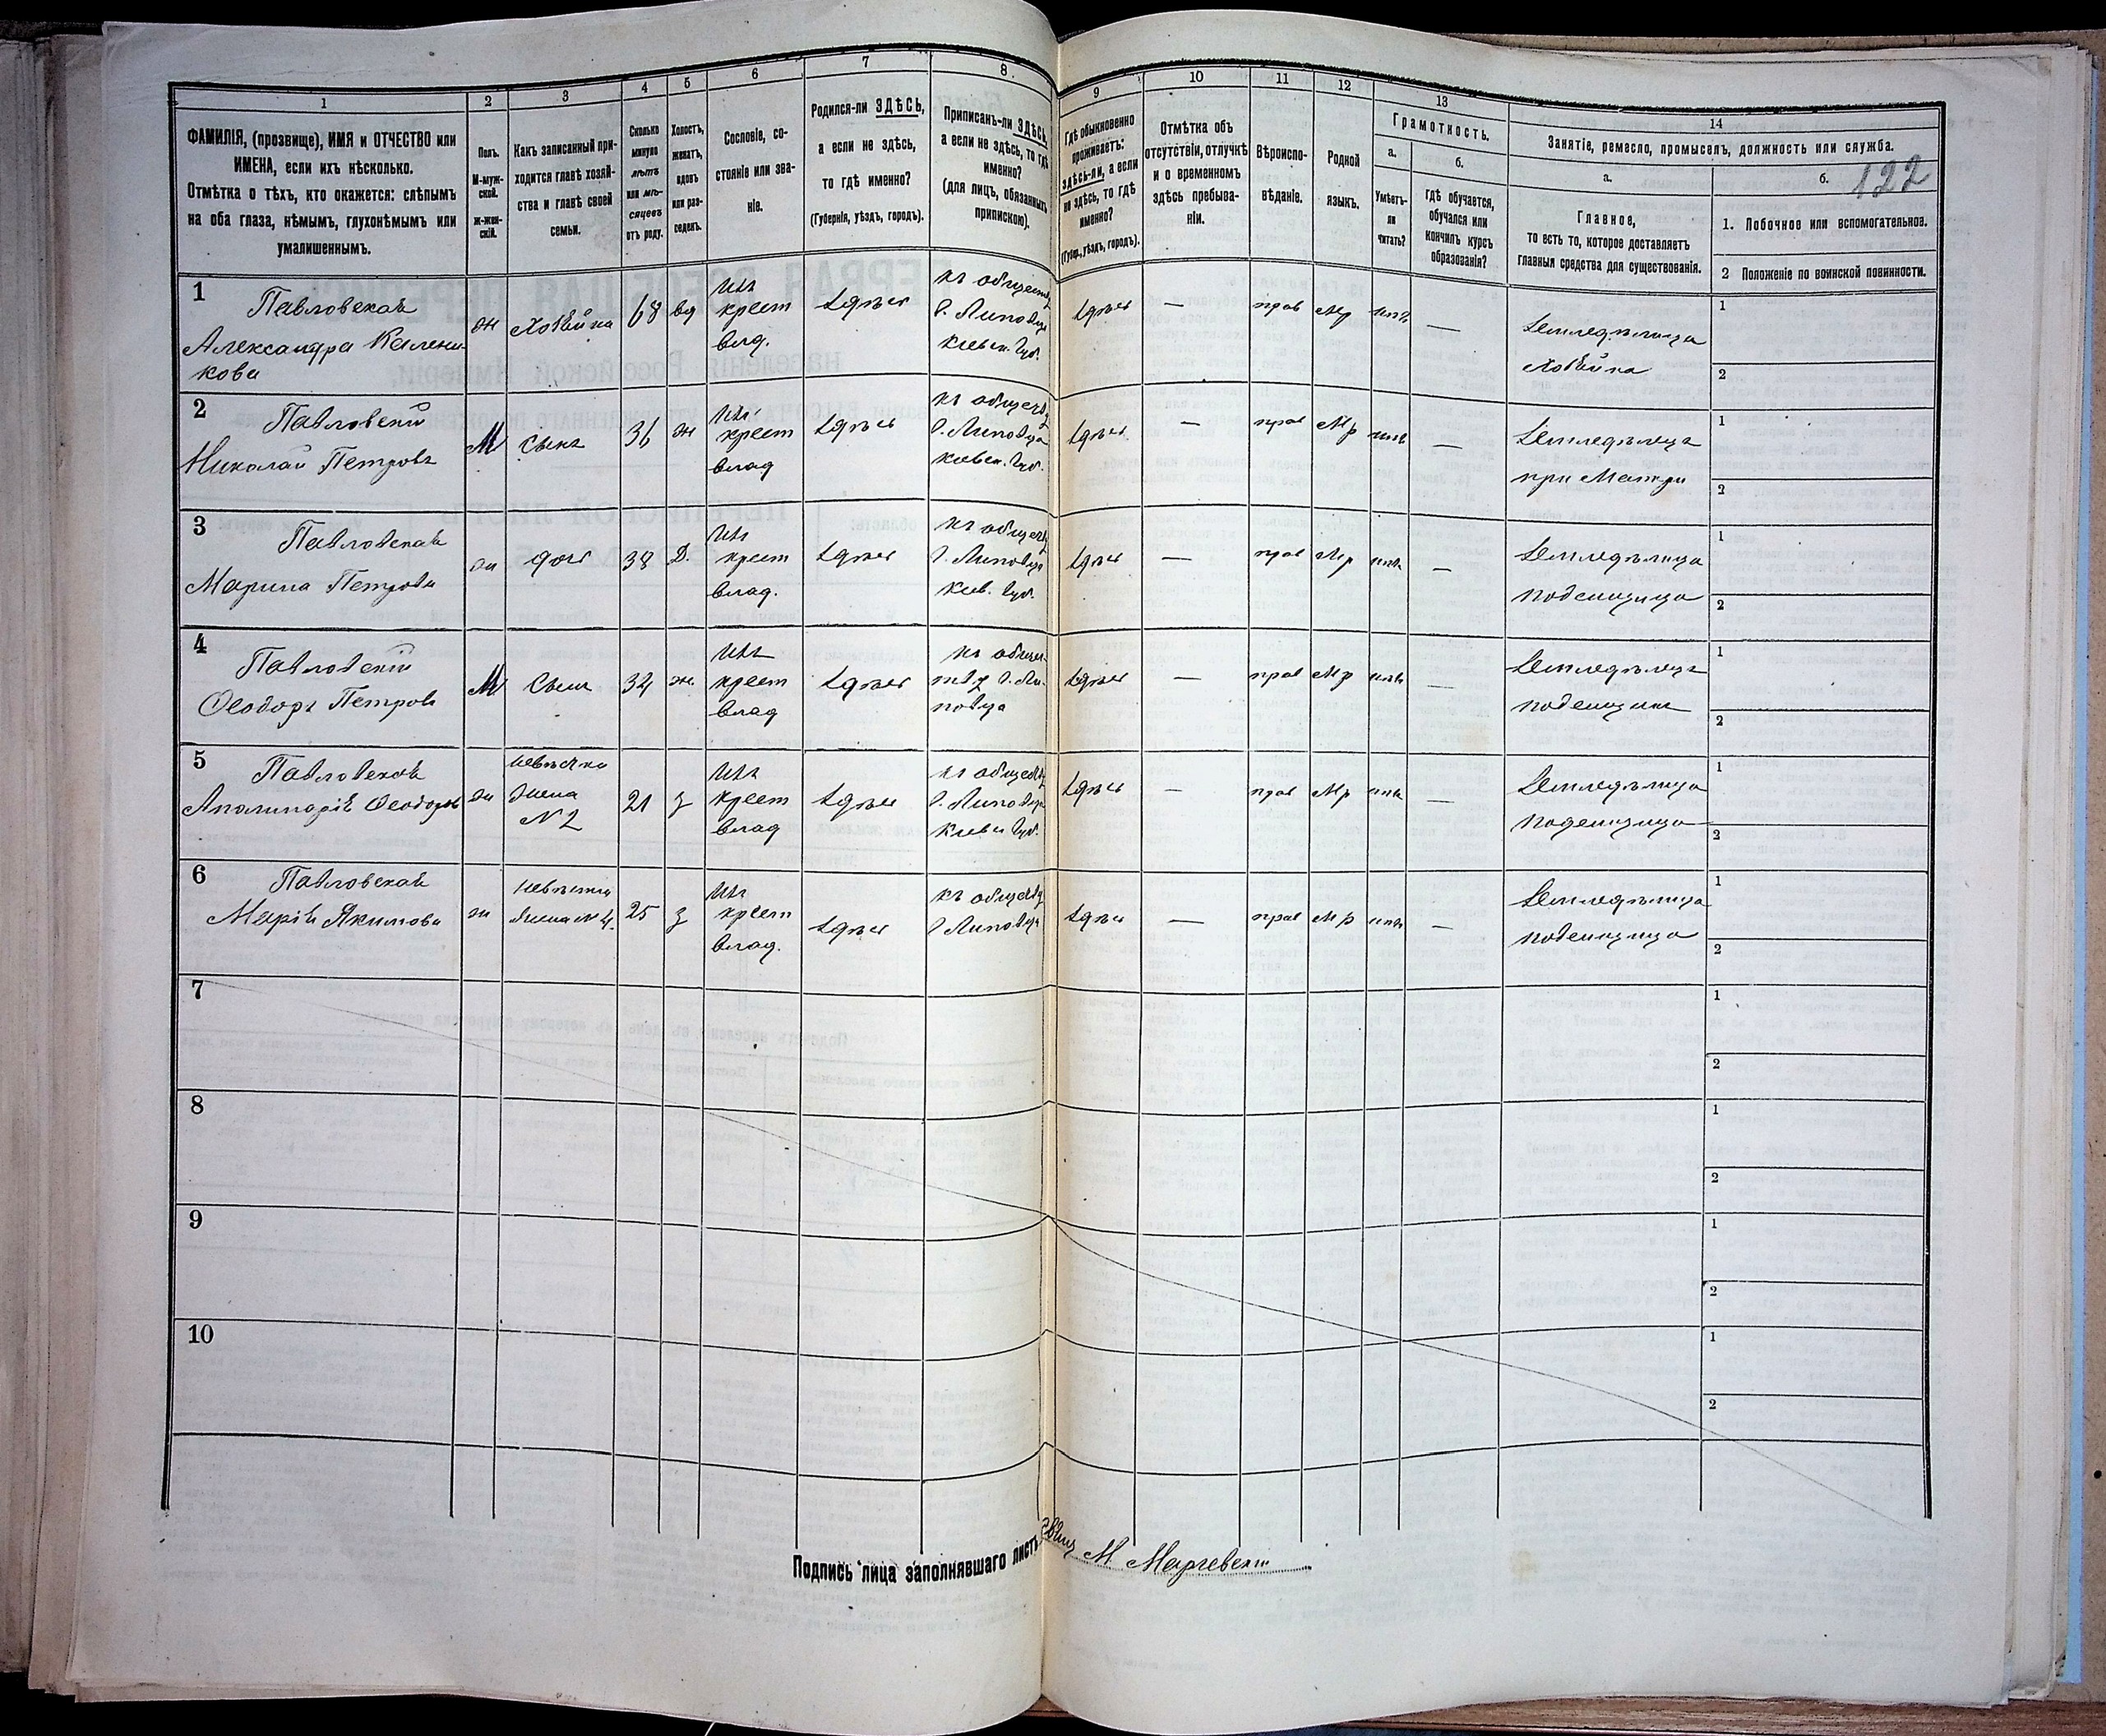 122
1
ФАМИЛІЯ, (прозвище), ИМЯ и ОТЧЕСТВО или
ИМЕНА, если ихъ нѣсколько.
Отмѣтка о тѣхъ, кто окажется: слѣпымъ
на оба глаза, нѣмымъ, глухонѣмымъ или
умалишеннымъ.
2
Полъ.
М-муж-
ской.
ж-жен-
скій.
3
Какъ записанный при-
ходится главѣ хозяй-
ства и главѣ своей
семьи.
4
Сколько
минуло
лѣтъ
или мѣ-
сяцевъ
отъ роду.
5
Холостъ,
женатъ,
вдовъ
или раз-
веденъ.
6
Сословіе, со-
стояніе или зва-
ніе.
7
Родился-ли ЗДѢСЬ,
а если не здѣсь,
то гдѣ именно?
(Губернія, уѣздъ, городъ).
8
Приписанъ-ли ЗДѢСЬ,
а если не здѣсь, то гдѣ
именно?
(для лицъ, обязанныхъ
припискою).
9
Гдѣ обыкновенно
проживаетъ:
здѣсь-ли, а если
не здѣсь, то гдѣ
именно?
(Губер., уѣздъ, городъ).
10
Отмѣтка объ
отсутствіи, отлучкѣ
и о временномъ
здѣсь пребыва-
ніи.
11
Вѣроиспо-
вѣданіе.
12
Родной
языкъ.
13
Грамотность.
а.
Умѣетъ-
ли
читать?
б.
Гдѣ обучается,
обучался или
кончилъ курсъ
образованія?
14
Занятіе, ремесло, промыселъ, должность или служба.
а.
Главное,
то есть то, которое доставляетъ
главныя средства для существованія.
б.
1. Побочное или вспомогательное.
2 Положеніе по воинской повинности.
1
Павловская
Александра Калени-
кова
ж
хозяйка
68
вд
изъ
крест
влад.
здѣсь
къ обществу
г. Липовца
Киевск. Губ.
здѣсь
—
прав
Мр
нѣтъ
—
Земледѣлица
хозяйка
1
2
2
Павловскій
Николай Петровъ
М
сынъ
36
ж
изъ
крест
влад
здѣсь
къ обществу
г. Липовца
Киевск. Губ.
здѣсь
—
прав
Мр
нѣтъ
—
Земледѣлецъ
при Матери
1
2
3
Павловская
Марина Петрова
ж
дочь
38
Д.
изъ
крест
влад.
здѣсь
къ обществу
г. Липовца
Киев. Губ.
здѣсь
—
прав
Мр
нѣтъ
—
Земледѣлица
поденщица
1
2
4
Павловскій
Ѳеодоръ Петровъ
М
сынъ
32
ж
изъ
крест
влад
здѣсь
къ общес-
тву г. Ли-
повца
здѣсь
—
прав
Мр
нѣтъ
—
Земледѣлецъ
поденщикъ
1
2
5
Павловская
Аполинарія Ѳеодорова
ж
невѣстка
жена
№ 2
21
з
изъ
крест
влад
здѣсь
къ обществу
г. Липовца
Киевск Губ.
здѣсь
—
прав
Мр
нѣтъ
—
Земледѣлица
поденщица
1
2
6
Павловская
Марія Якимова
ж
невѣстка
жена № 4.
25
з
изъ
крест
влад.
здѣсь
къ обществу
г Липовца
здѣсь
—
прав
Мр
нѣтъ
—
Земледѣлица
поденщица
1
2
7
1
2
8
1
2
9
1
2
10
1
2
Подпись лица заполнявшаго листъ